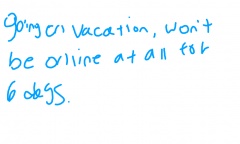 going on vacation, won't
be online at all for
6 days.